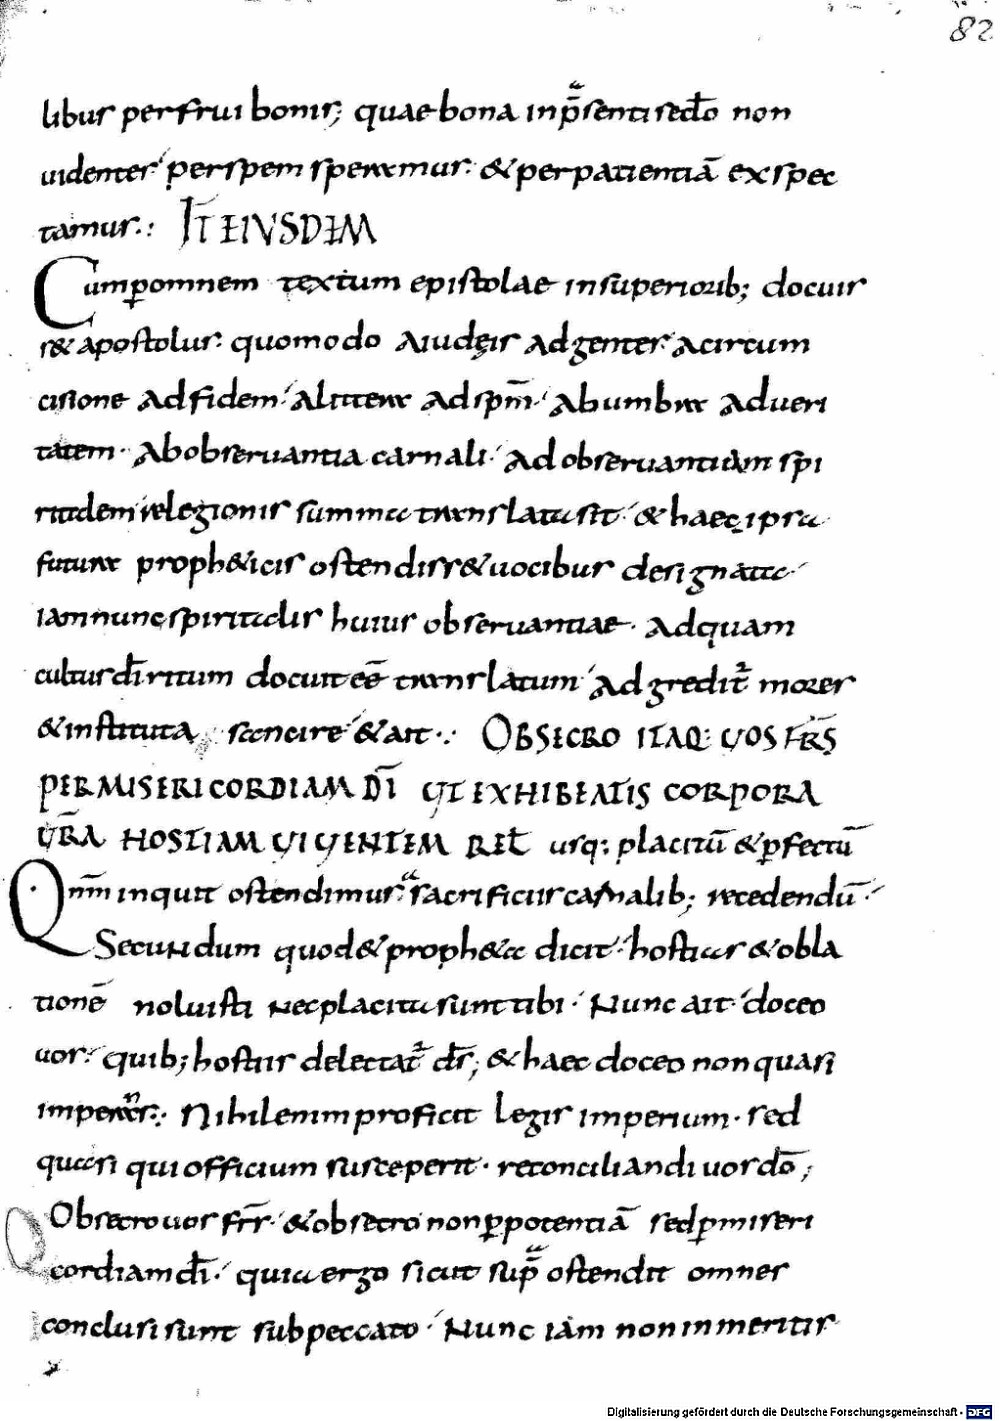 82
libus perfrui bonis; quae bona inp̄senti sedo̅ non
uidentes perspem speramus. & perpatientiā exspec
tamus.: IT̄ EIUSDEM
Cumꝑomnem textum epistolae insuperiorib; docuis
s& apostolus. quomodo Aiudęis adgentes. Acircum
cisione Adfidem. Alittera Adspm̄. Abumbra Aduer̄i
tatem. Abobseruantia carnali. Adobseruantiam spi
ritalem relegionis summa translata sit. & haec ipsa
futura proph&icis ostendiss& uocibus designata.
iamnunc spiritalis huius obseruantiae. Adquam
cultus dī ritum docuit eē translatum. Adgredit̄ mores
& instituta sancire. & ait.: OBSECRO ITAQ: UOS FR̄S
PER MISERICORDIAM DĪ UT EXHIBEATIS CORPORA
UR̄A HOSTIAM UIUENTEM REL̄ usq: placitū & ꝑfectū
Qm̄ inquit ostendimus. a sacrificiis carnalib; recedendū.
Secundum quod & proph&a dicit. hostias & obla
tionē noluisti Necplacita sunt tibi. Nunc ait. doceo
uos. quib; hostiis delectat̄ d̄s; & haec doceo non quasi
imperans.: Nihil enim proficit legis imperium. sed
quasi qui officium susceperit. reconciliandi uos dō;
Obsecro uos frs̄. & obsecro non ꝑpotentiā sedꝑmiseri
cordiam dī. quia ergo sicut sup̄ ostendit omnes
conclusi sunt sub peccato. Nunc iam non inmeritis
Digitalisierung gefördert durch die Deutsche Forschungsgemeinschaft - DFG